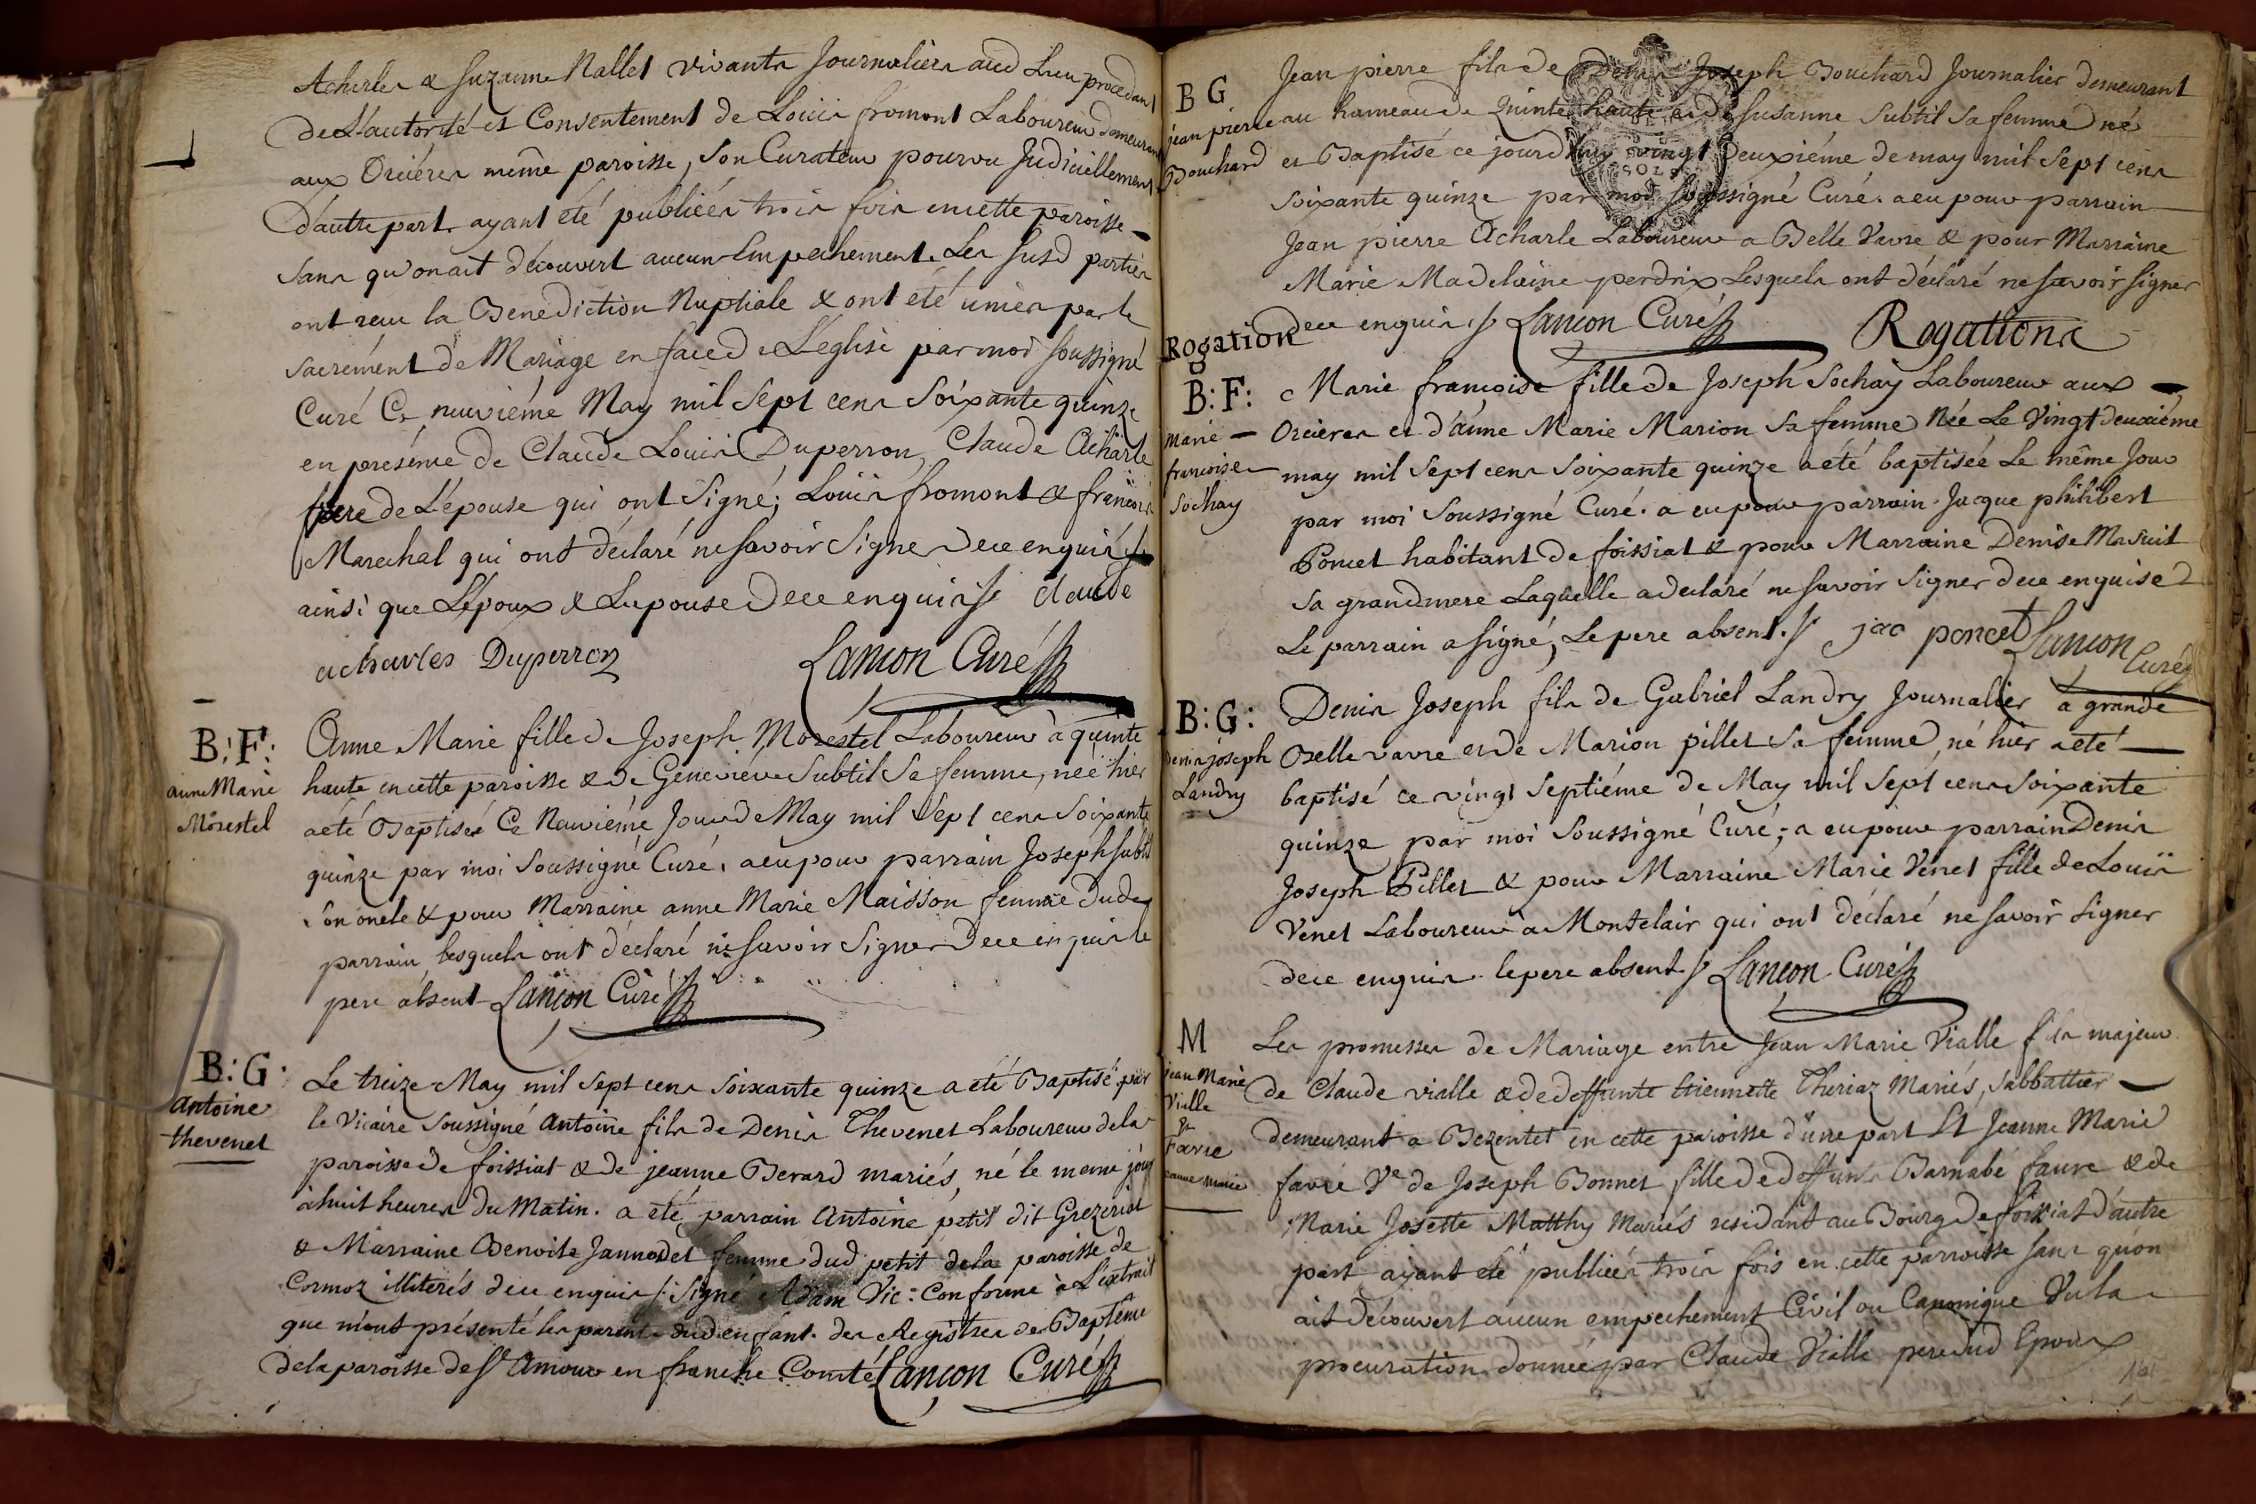 Acharles & Suzanne Nallet vivants Journaliers aud Lieu procedant
de L'autorité et Consentement de Louis fromont Laboureur demeurant
aux Orciéres même paroisse, Son Curateur pourvu Judiciellement
d'autre part, ayant été publiées trois fois en cette paroisse
Sans qu'on ait découvert aucun Empechement. Les Susd parties
ont reçu la Benediction Nuptiale & ont été unies par le
sacrément de Mariage en face de L'eglise par moi soussigné
Curé Ce neuviéme May mil Sept cens Soixante quinze
en presence de Claude Louis Duperron, Claude Acharle
frere de L'épouse qui ont Signé; Louis fromont & françois
Marechal qui ont déclaré ne savoir Signer de ce enquis
ainsi que L'époux & L'epouse de ce enquis claude
acharles Duperron Lançon Curé
B: F:
anne Marie
Morestel
Anne Marie fille de Joseph Moréstel Laboureur à quinte
haute en cette paroisse & de Geneviéve Subtil Sa femme, née hier
a été Baptisée Ce Neuviéme Jour de May mil Sept cens Soixante
quinze par moi Soussigné Curé, a eu pour parrain Joseph Subtil
Son oncle & pour Marraine anne Marie Maisson femme dud
parrain, lesquels ont déclaré ne savoir Signer de ce enquis le
pere absent Lançon Curé
B: G:
antoine
thevenet
Le treize May mil Sept cens soixante quinze a été Baptisé par
le Vicaire Soussigné antoine fils de Denis Thevenet Laboureur de la
paroisse de foissiat & de jeanne Berard mariés, né le meme jour
à huit heures du Matin. a été parrain Antoine petit dit Grezeriat
& Marraine Benoite Jannodet femme dud petit de la paroisse de
Cormoz illiterés de ce enquis /: Signé Adam Vic: Conforme à L'extrait
que m'ont présenté les parents dud enfant des Registres de Baptême
de la paroisse de St Amour en franche Comté Lançon Curé
B G
jean pierre
Bouchard
Jean pierre fils de Denis Joseph Bouchard Journalier demeurant
au hameau de Quinte haute & de Susanne Subtil Sa femme né
et Baptisé ce jourd'huy vingt deuxiéme de may mil Sept cens
Soixante quinze par moi soussigné Curé. a eu pour parrain
Jean pierre Acharle Laboureur a Belle Vavre & pour Marraine
Marie Madelaine perdrix Lesquels ont déclaré ne savoir signer
de ce enquis Lançon Curé Rogations
Rogation
B: F:
Marie
francoise
Sochay
Marie francoise fille de Joseph Sochay Laboureur aux
Orcieres et d'anne Marie Marion Sa femme Née Le Vingt deuxiéme
may mil Sept cens Soixante quinze a été baptisée Le même Jour
par moi Soussigné Curé. a eu pour parrain Jacque philibert
Poncet habitant de foissiat & pour Marraine Denise Masuit
Sa grandmere Laquelle a declaré ne savoir Signer de ce enquise
Le parrain a signé, Le pere absent. jac poncet Lançon
Curé
B: G:
denis joseph
Landry
Denis Joseph fils de Gabriel Landry Journalier a grande
Belle vavre et de Marion pillet Sa femme, né hier a été
baptisé ce vingt Septiéme de May mil Sept cens Soixante
quinze par moi Soussigné Curé; a eu pour parrain Denis
Joseph Pillet & pour Marraine Marie Venet fille de Louis
Venet Laboureur a Montclair qui ont déclaré ne savoir Signer
de ce enquis. le pere absent Lançon Curé
M
jean Marie
Vialle
&
Favre
Les promesses de Mariage entre Jean Marie Vialle fils majeur
de Claude vialle & de deffunte Etiennette Theriaz Mariés, Sabbattier
demeurant a Bezentet en cette paroisse d'une part Et Jeanne Marie
favre Ve de Joseph Bonnet fille de deffunt Barnabé favre & de
Marie Josette Matthy Mariés residant au Bourg de foissiat d'autre
part ayant été publiées trois fois en cette parroisse sans qu'on
ait découvert aucun empechement Civil ou Canonique Vu la
procuration donnée par Claude Vialle pere dud Epoux